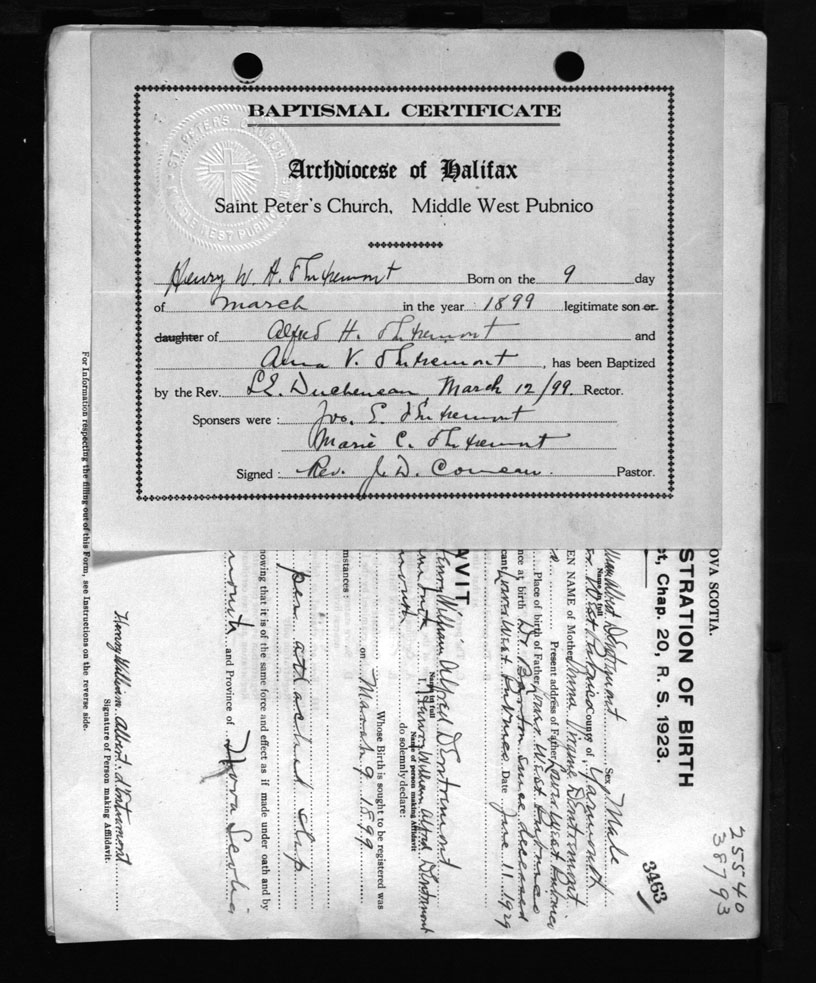 BAPTISMAL CERTIFICATE
ST. PETER'S CHURCH
MIDDLE WEST PUBNICO
Archdiocese of Halifax
Saint Peter's Church, Middle West Pubnico
Henry W. A. d'Entremont Born on the 9 day
of March in the year 1899 legitimate son or
daughter of Alfred H. d'Entremont and
Anna V. d'Entremont, has been Baptized
by the Rev. March 12/99. Rector.
Sponsers were: Jos. E. d'Entremont
Marie C. d'Entremont
Signed: Rev. J. D. Comeau. Pastor.
OVA SCOTIA.
STRATION OF BIRTH
ct, Chap. 20, R. S. 1923.
25540
38793
3463
lliam Albert D'Entremont Sex Male
Name in full
West Pubnico County of Yarmouth
EN NAME of Mother Anna D'Entremont
Present address of Father Lower West Pubnico
Place of birth of Father Lower West Pubnico
nce at birth Dr. since deceased
cant Lower West Pubnico Date June 11 1929
AVIT
Henry William Alfred D'Entremont
Name in full
I, Henry William Alfred D'Entremont
Name of person making Affidavit
mouth do solemnly declare:
Whose Birth is sought to be registered was
on March 9 1899
mstances:
per attached slip
nowing that it is of the same force and effect as if made under oath and by
mouth and Province of Nova Scotia
Henry William Albert d'Entremont
Signature of Person making Affidavit.
For Information respecting the filling out of this Form, see Instructions on the reverse side.